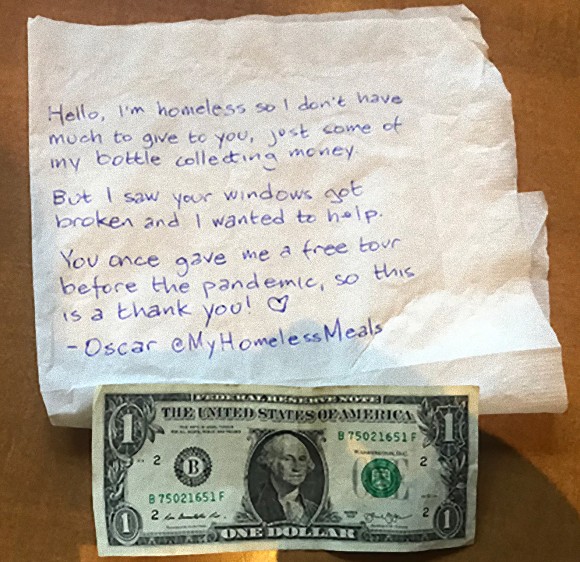 Hello, I'm homeless so I don't have
much to give to you, just some of
my bottle collecting money.
But I saw your windows got
broken and I wanted to help.
You once gave me a free tour
before the pandemic, so this
is a thank you! ♡
- Oscar @MyHomelessMeals
FEDERAL RESERVE NOTE
THE UNITED STATES OF AMERICA
1
1
B 75021651 F
WASHINGTON, D.C.
2
B
2
B 75021651 F
2
2
1
ONE DOLLAR
1